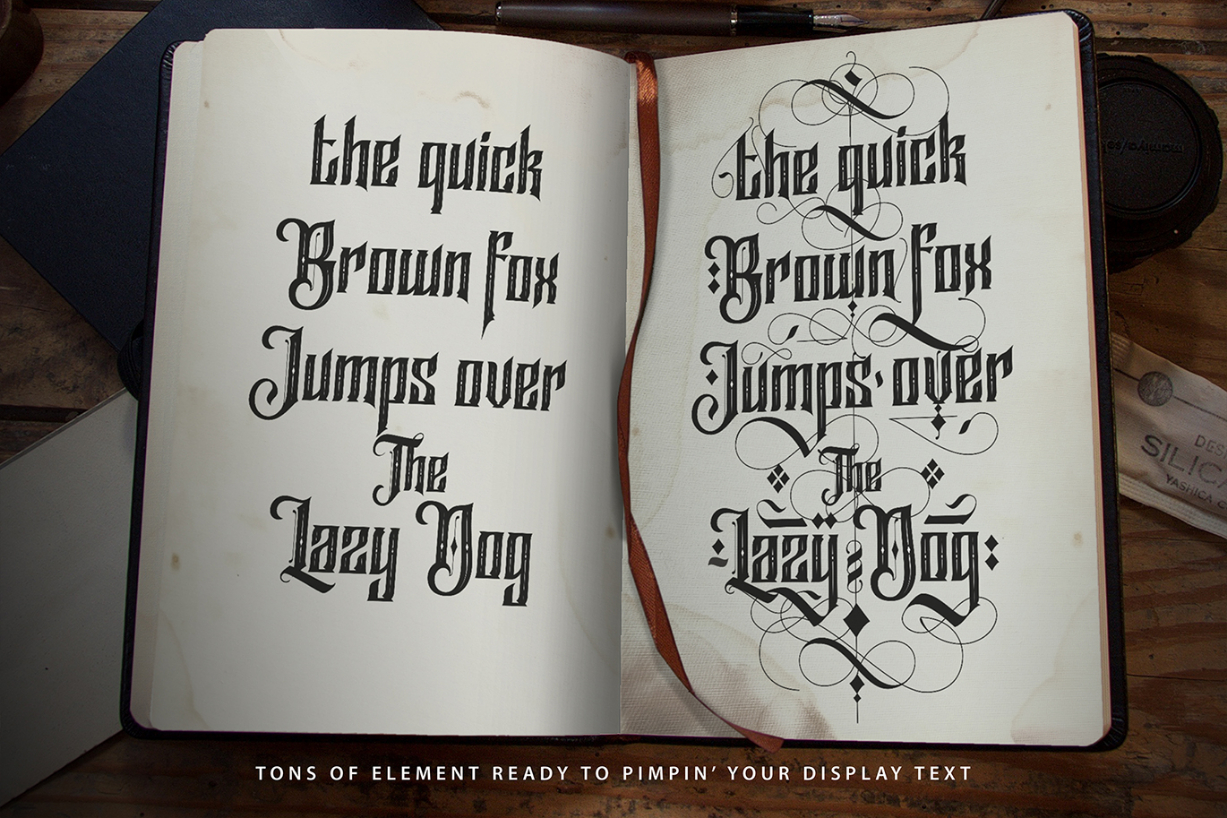 the quick
Brown fox
Jumps over
The
Lazy Dog
the quick
Brown fox
Jumps over
The
Lazy Dog
TONS OF ELEMENT READY TO PIMPIN' YOUR DISPLAY TEXT
mamiya/se
SILIC
YASHICA